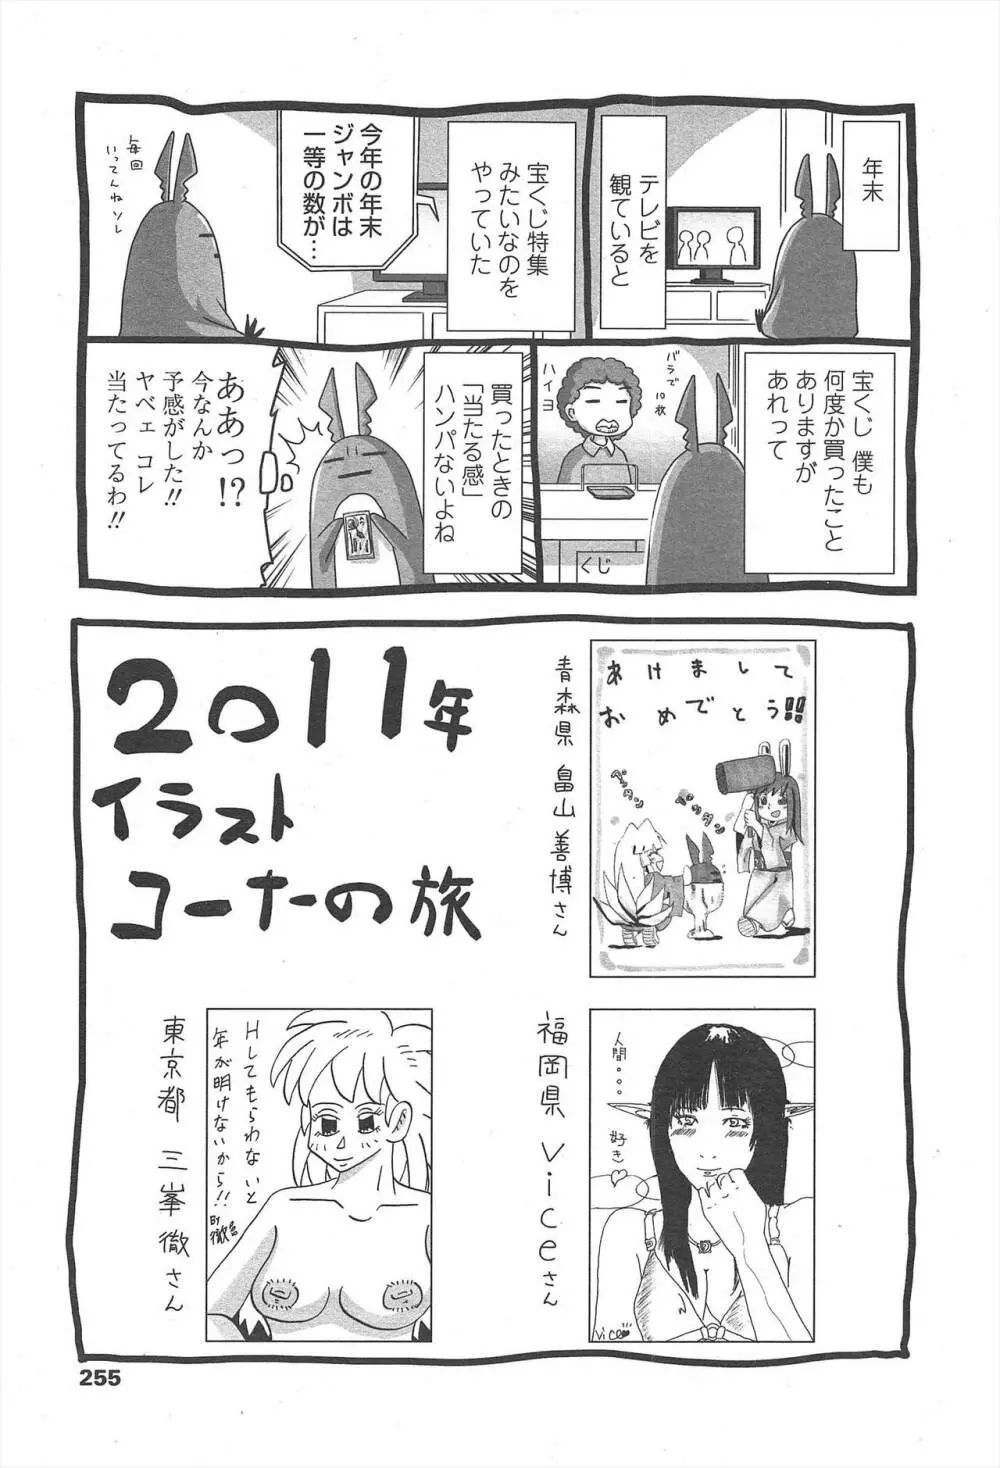 年末
テレビを
観ていると
宝くじ特集
みたいなのを
やっていた
今年の年末
ジャンボは
一等の数が…
毎回
いってんねソレ
宝くじ 僕も
何度か買ったこと
ありますが
あれって
バラで10枚
ハイヨ
くじ
買ったときの
「当たる感」
ハンパないよね
ああっ!?
今なんか
予感がした!!
ヤベェ コレ
当たってるわ!!
2011年
イラスト
コーナーの旅
あけまして
おめでとう!!
ペッタン
ペッタン
青森県 畠山善博さん
人間...
好き♡
vice
福岡県 viceさん
Hしてもらわないと
年が明けないから!!
BY
東京都 三峯徹さん
255